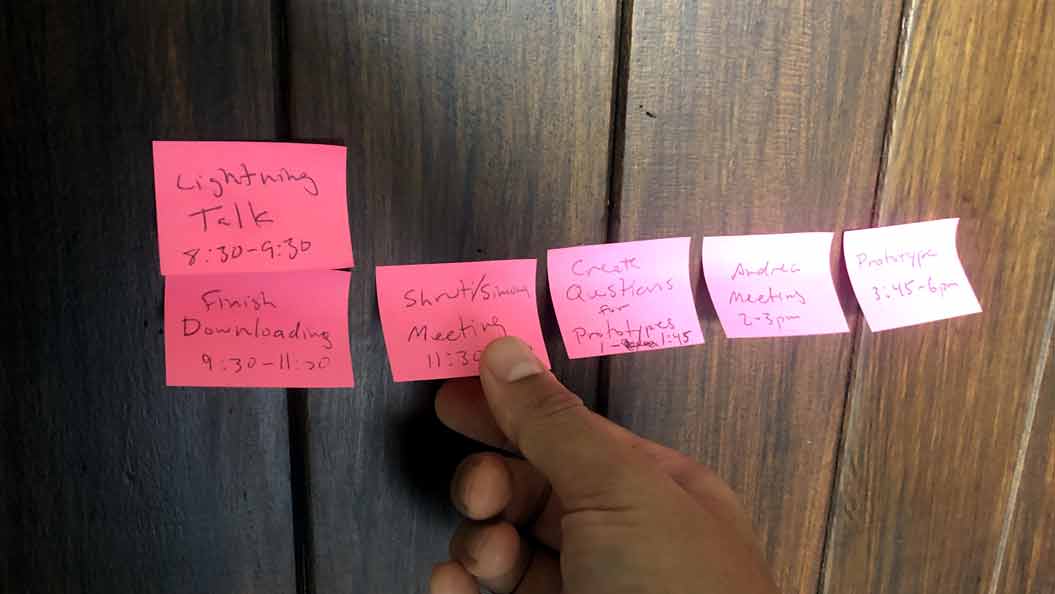 Lightning
Talk
8:30-9:30
Finish
Downloading
9:30-11:20
Shruti/Simona
Meeting
11:30
Create
Questions
for
Prototypes
1-1:45
Andrea
Meeting
2-3pm
Prototype
3:45-6pm